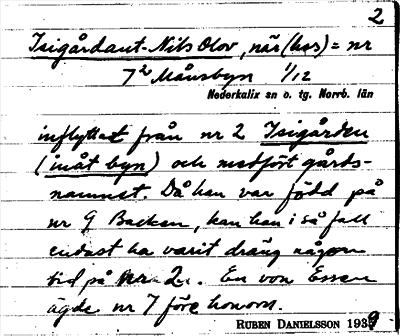 2
Isigårdant-Nils Olov, när (hos) = nr
7² Månsbyn 1/12
Nederkalix sn o. tg. Norrb. län
inflyttat från nr 2 Isigården
(inåt byn) och medfört gårds-
namnet. Då han var född på
nr 9 Backen, kan han i så fall
endast ha varit dräng någon
tid på nr 2. En von Essen
ägde nr 7 före honom.
RUBEN DANIELSSON 1939